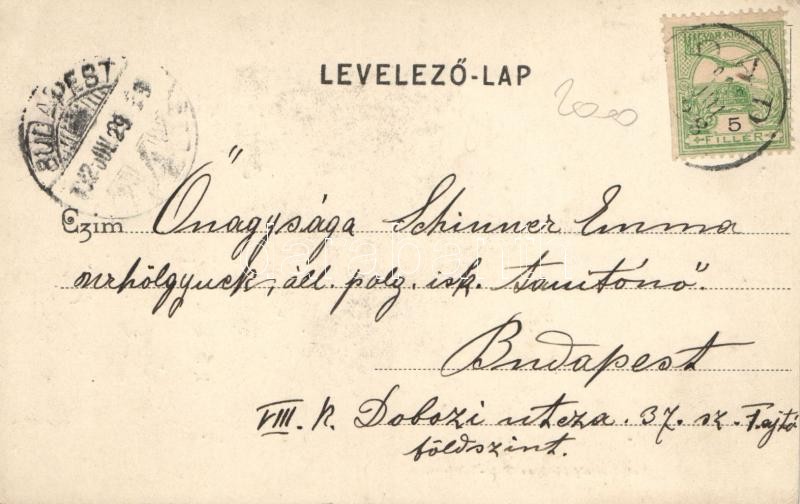 LEVELEZŐ-LAP
2000
BUDAPEST
902 JUN. 29
MAGYAR KIR. POSTA
5
FILLÉR
Czim Őnagysága Schinner Emma
urhölgynek, áll. polg. isk. tanítónő.
Budapest
VIII. k. Dobozi utcza. 37. sz. F. ajtó
földszint.